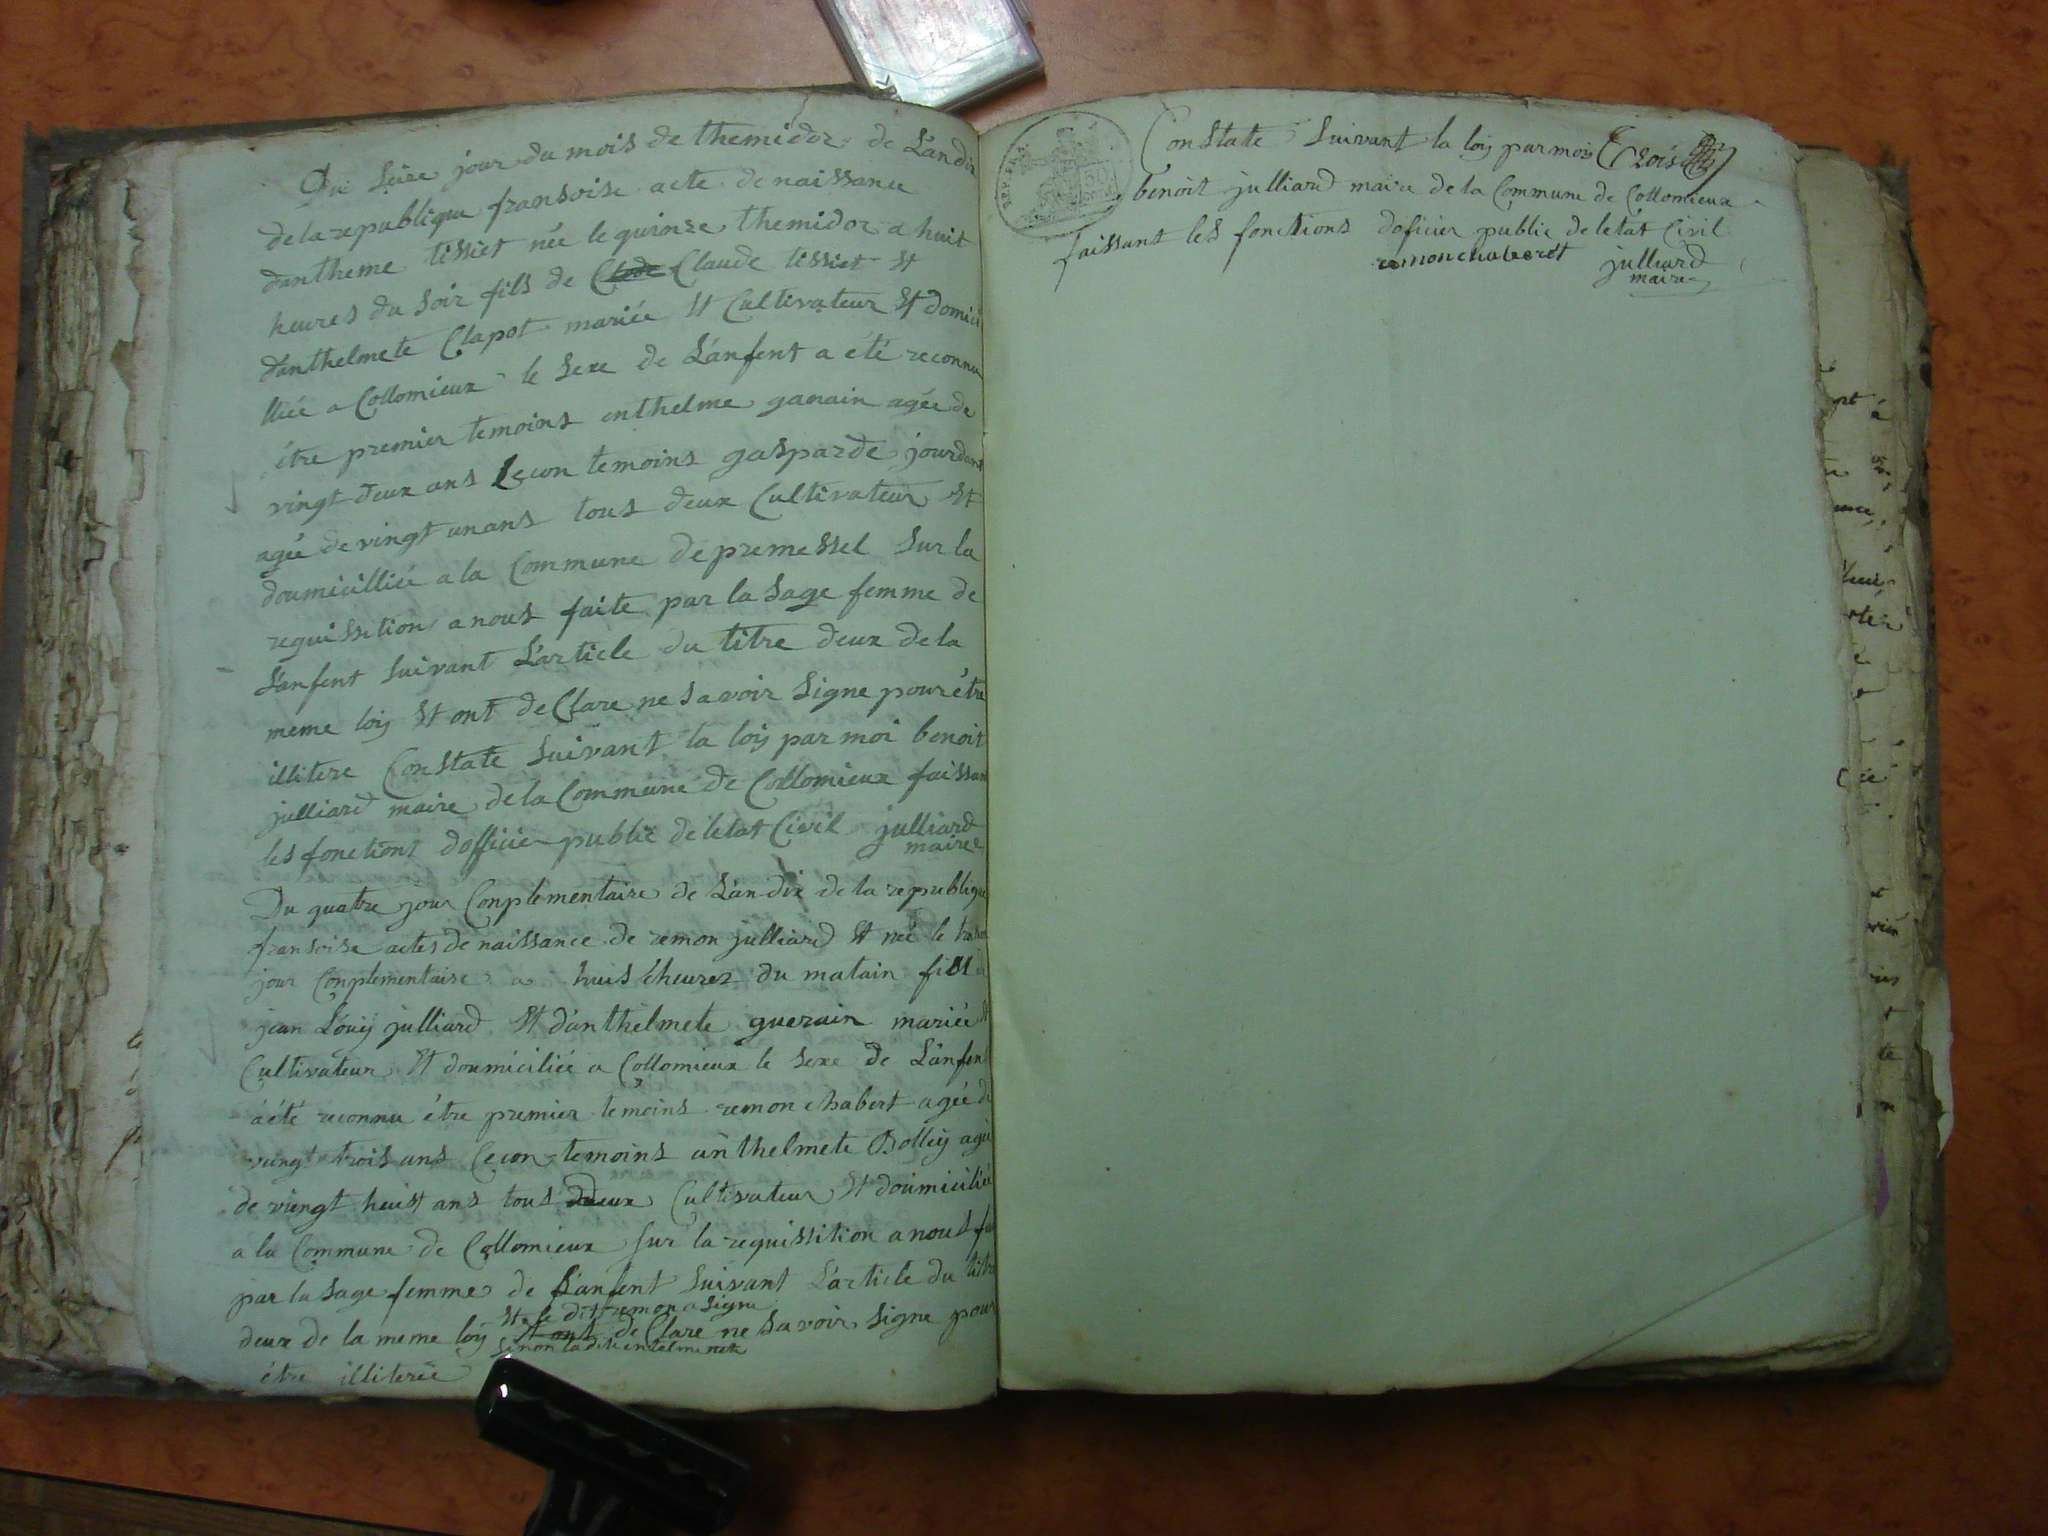 Du Seize jour du mois de themidor de L'an dix
de la republique fransoise acte de naissance
d'antheme tissiet née le quinze themidor a huit
heures du soir fils de Claude tissiet et
d'anthelmete Clapot mariée et Cultivateur et domici
lliée a Collomieux le Sexe de L'anfent a été reconnu
être premier temoins enthelme ganain agée de
vingt deux ans Secon temoins gasparde jourdant
agée de vingt un ans tous deux Cultivateur et
doumicilliée a la Commune de premessel Sur la
requissition a nous faite par la Sage femme de
L'anfent Suivant L'article du titre deux de la
meme loy et ont deClare ne Savoir Signe pour être
illitere ConState Suivant la loy par moi benoit
julliard maire de la Commune de Collomieux faissan
les fonctions d'officier public de l'etat Civil julliard
maire
Du quatre jour Conplementaire de L'an dix de la republique
fransoise actes de naissance de remon julliard et née le
jour Conplementaire a huis t'heures du matain fils
jean Louy julliard et d'anthelmete guerain mariée et
Cultivateur et doumiciliée a Collomieux le Sexe de L'anfent
a été reconnu être premier temoins remon chabert agée de
vingt trois ans Secon temoins anthelmete Bolley agée
de vingt huist ans tous deux Cultivateur et doumiciliée
a la Commune de Collomieux Sur la requissition a nous
par la Sage femme de L'anfent Suivant L'article du titre
et le dit remon a Signe
deux de la meme loy et ont deClare ne Savoir Signe pour
Sinon la dite
être illiterée
ConState Suivant la loy par moy
benoit julliard maire de la Commune de Collomieux
faissant les fonctions d'oficier public de letat Civil
remon chaberet julliard
maire